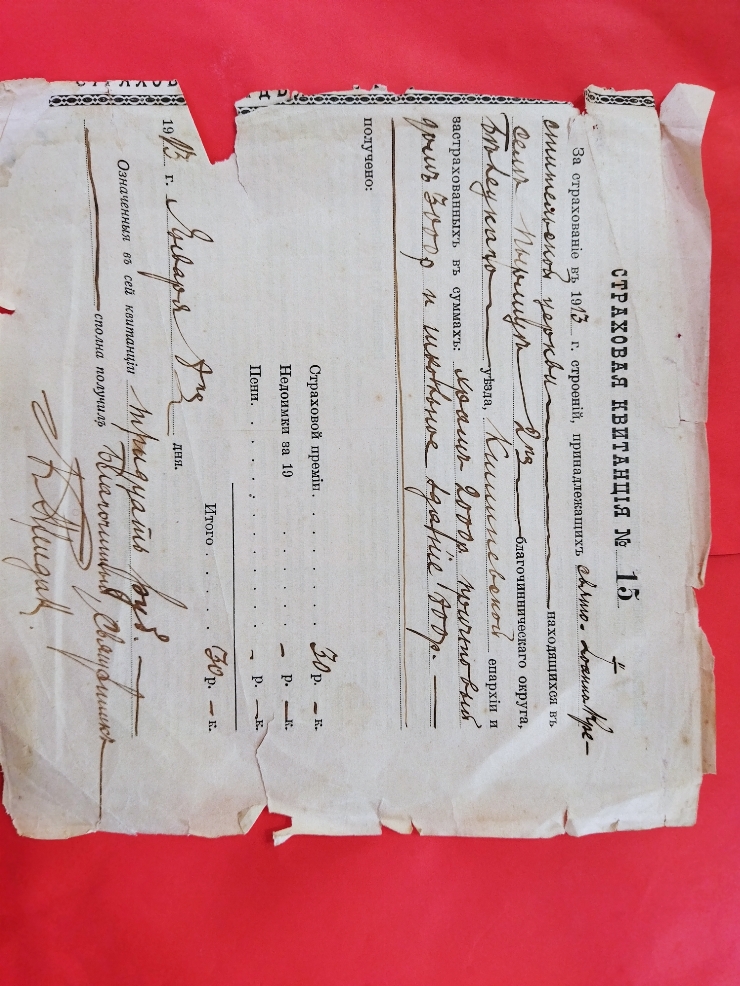 СТРАХОВАЯ КВИТАНЦІЯ № 15
За страхованіе въ 1913 г. строеній, принадлежащихъ свято-Іоанно Кре-
стительской церкви находящихся въ
селѣ 2го благочинническаго округа,
Бѣлецкаго уѣзда, Кишиневской епархіи и
застрахованныхъ въ суммахъ: храмъ 2000р причтовый
домъ 3000р и школьное зданіе
получено:
Страховой преміи. 30 р. – к.
Недоимки за 19 – р. – к.
Пени. – р. – к.
Итого 30 р. – к.
1913 г. Января дня.
Означенныя въ сей квитанціи тридцать руб.
сполна получилъ Благочинный, Священникъ